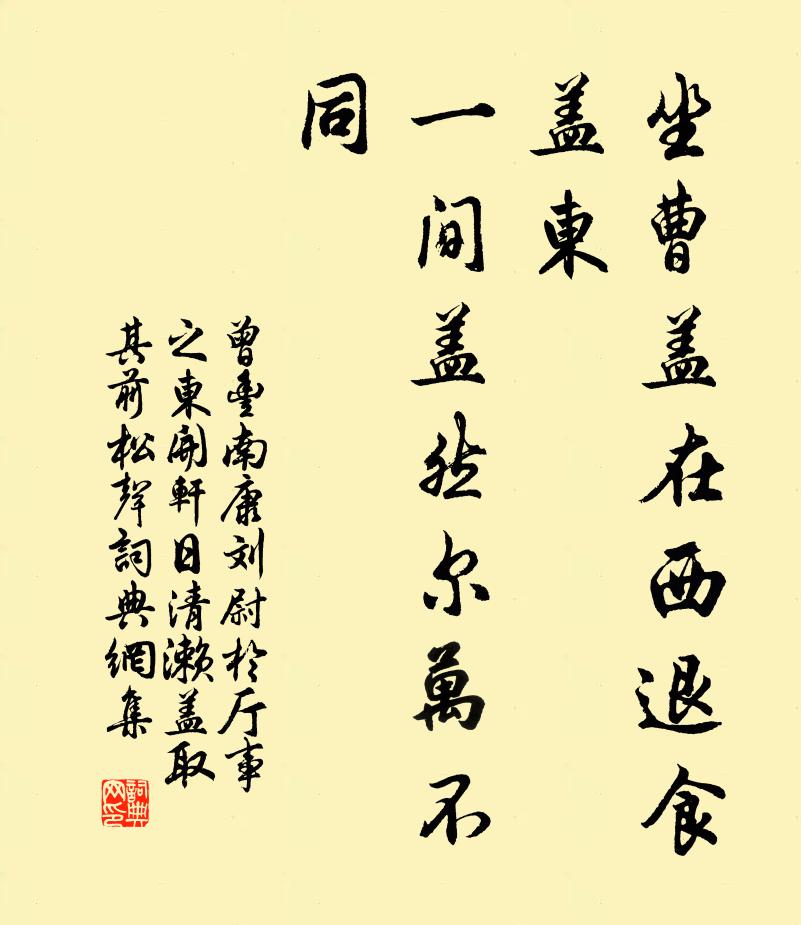 坐曹盖在西退食
盖東
一间盖然尔萬不
同
曾豊南康刘尉於厅事
之東開軒日清濑盖取
其前松聲詞典網集
詞典
网印